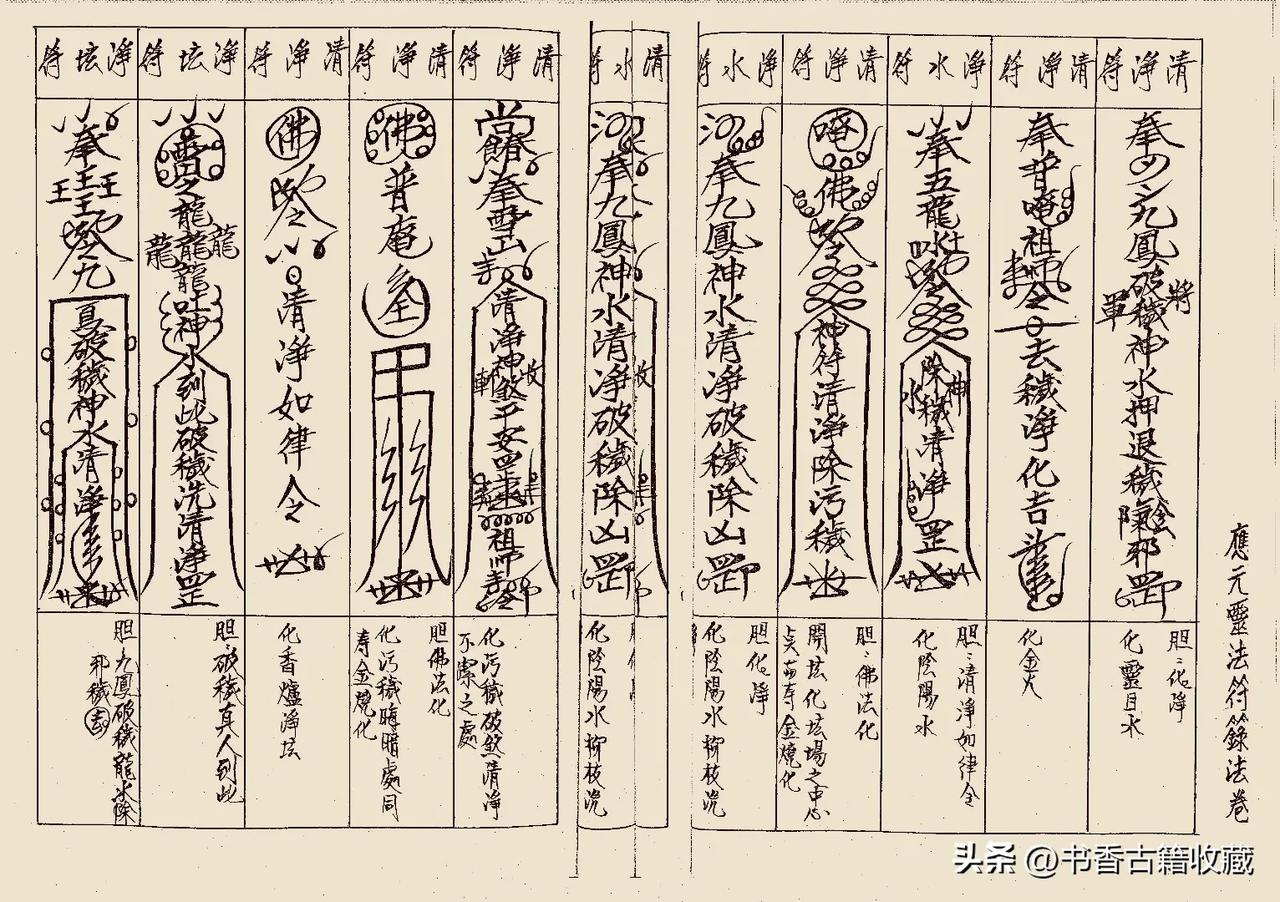 應元靈法符籙法卷
清淨符
奉九鳳破穢將軍神水押退穢氣陰邪罡印
胆:化淨
化靈目水
清淨符
奉普唵祖師令去穢淨化吉
化金火
淨水符
奉五龍吐水
神水除穢清淨罡
胆:清淨如律令
化陰陽水
清淨符
唵佛
神符清淨除污穢
胆:佛法化
開坛化坛場之中心
寿金燒化
淨水符
奉九鳳神水清淨破穢除凶罡印
胆化淨
化陰陽水柳枝洗
清
水符
奉九鳳神水清淨破穢除凶罡
化陰陽水柳枝洗
清淨符
奉雪山
清淨神煞平安罡
祖師
化污穢破煞清淨
不潔之處
清淨符
佛普庵
胆佛法化
化污穢晦暗處同
寿金燒化
清淨符
佛
清淨如律令
化香爐淨坛
淨坛符
雷
龍龍龍龍吐神水到此破穢洗清淨罡
胆:破穢真人到此
淨坛符
奉王王王王
九
破穢神水清淨
胆:九鳳破穢龍水除
邪穢去
头条 @书香古籍收藏